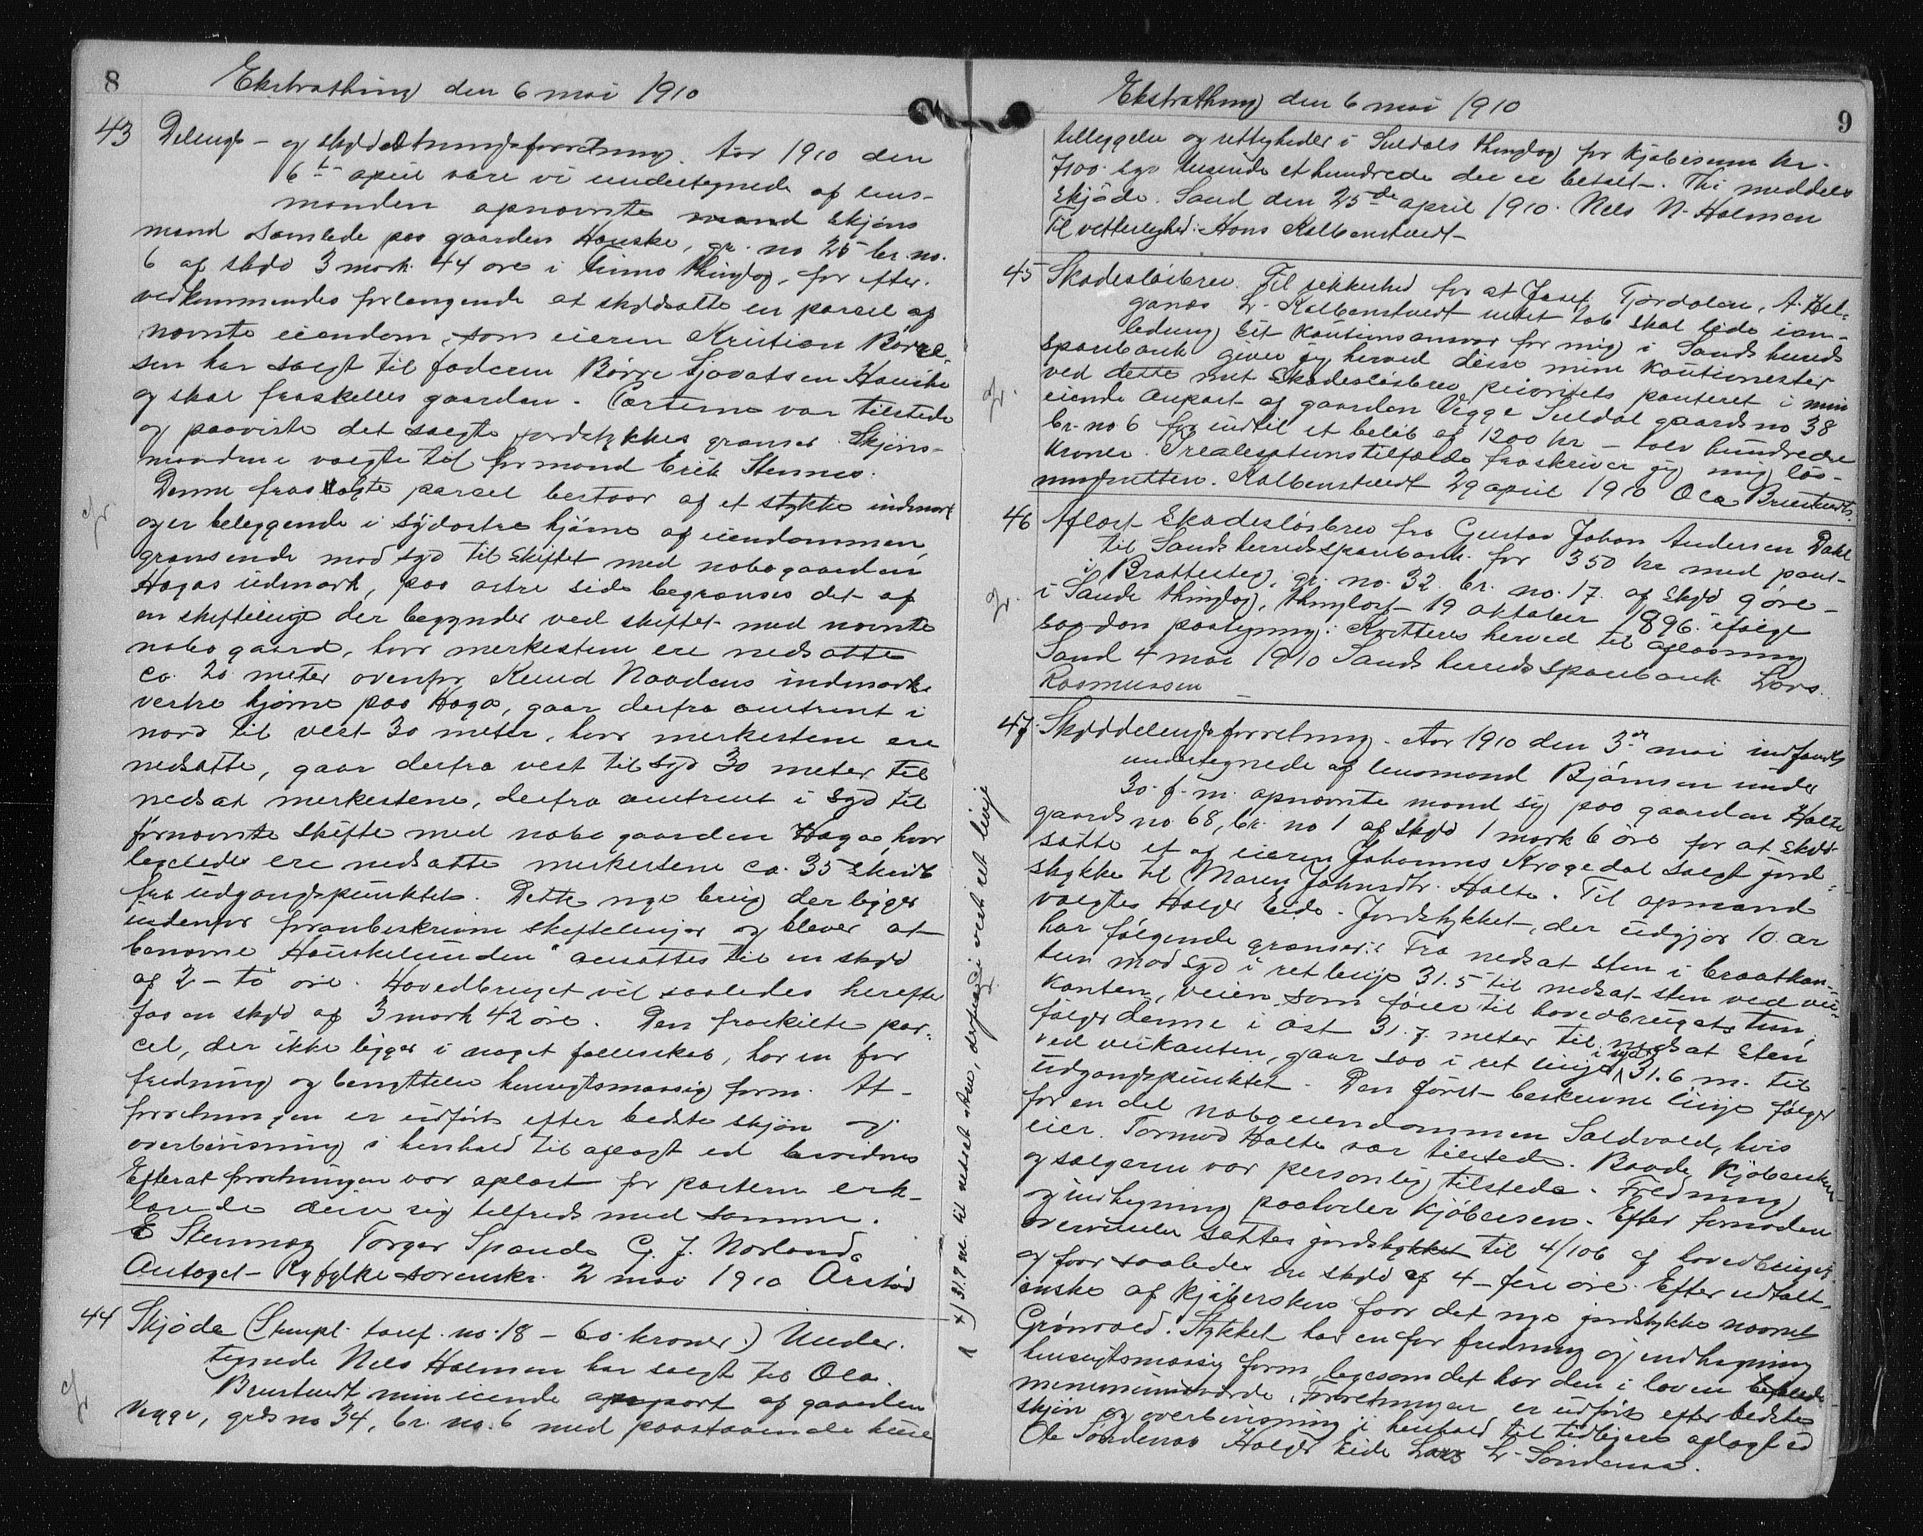 8
Ekstrathing den 6 mai 1910
43 Delings- og skyldsætningsforretning. Aar 1910 den
6te april vare vi undertegnede af lens-
manden opnævnte mænd skjøns
mænd samlede paa gaarden Hauske, gr. no 25 br. no.
6 af skyld 3 mark 44 øre i thinglag, for efter
vedkommendes forlangende at skyldsætte en parsel af
nævnte eiendom, som eieren Kristian Børre-
sen har solgt til faderen Børre Sjovatsen Hauske
og skal fraskilles gaarden. Parterne var tilstede
og paaviste det solgte jordstykkes grænser. Skjøns-
mændene valgte til formand Erik Stennes.
Denne frasolgte parsel bestaar af et stykke indmark
og er beliggende i sydøstre hjørne af eiendommen,
grænsende mod syd til skiftet med nabogaarden
Hagas udmark, paa østre side begrænses det af
en skiftelinje der begynder ved skiftet med nævnte
nabogaard, hvor merkestene ere nedsatte
ca. 20 meter ovenfor Knud Naadens indmarks
vestre hjørne paa Haga, gaar derfra omtrent i
nord til vest 30 meter, hvor merkestene ere
nedsatte, gaar derfra vest til syd 30 meter til
nedsat merkestene, derfra omtrent i syd til
førnævnte skifte med nabogaarden Haga hvor
ligeledes ere nedsatte merkestene ca. 35 skridt
fra udgangspunktet. Dette nye brug der ligger
indenfor foranbeskrevne skiftelinjer og blever at
benævne "Hauskelunden" ansættes til en skyld
af 2 - to øre. Hovedbruget vil saaledes herefter
faa en skyld af 3 mark 42 øre. Den fraskilte par-
cel, der ikke ligger i noget fællesskab, har en for
fredning og benyttelse hensigtsmæssig form. At
forretningen er udført efter bedste skjøn og
overbevisning i henhold til aflagt ed bevidnes
Efterat forretningen var oplæst for parterne erk-
lærede disse sig tilfreds med samme.
E Stennes Torger Spande G. J. Norland.
Antaget Ryfylke sorenskr. 2 mai 1910 Årstad
44 Skjøde (Stempl. tarif. no. 18 - 60 kroner.) Under-
tegnede Nels Holmen har solgt til Ola
Brustuedt min eiende anpart af gaarden
Vigge, grds no 34, br. no. 6 med paastaaende huse
x) 31.9 m. til nedsat sten, derfra i vest i ret linje
Ekstrathing den 6 mai 1910
9
tilleggelse og rettigheder i Suldals thinglag for kjøbesum kr-
7100. syv tusinde et hundrede der er betalt. Thi meddeles
Skjøde. Sand den 25de april 1910. Nels N. Holmen
Til vetterlighed: Hans Kolbenstvedt
45 Skadesløsbrev. Til sikkerhed for at Josef Tjordalen, A. Hel-
ganes L. Kolbenstvedt intet tab skal lide i an-
ledning sit kautionsansvar for mig i Sands herreds
sparebank giver jeg herved disse mine kautionister
ved dette mit Skadesløsbrev prioritets panteret i min
eiende anpart af gaarden Vigge Suldal gaards no 38
br. no 6 for indtil et beløb af 1200 kr - tolv hundrede
kroner. I realisationstilfælde fraskriver jeg mig løs-
ningsretten. Kolbenstvedt 29 april 1910 Ola Brustuedt.
46 Aflæst Skadesløsbrev fra Gustav Johan Andersen Dahl
til Sands herreds sparebank for 350 kr med pant-
i Brattesteg, gr. no. 32. br. no. 17. af skyld 9 øre -
i Sande thinglag, thinglæst 19 oktober 1896. ifølge
saadan paategning: Kvitteres herved til aflæsning
Sand 4 mai 1910 Sands herreds sparebank Lars
Rasmussen
47 Skylddelingsforretning. Aar 1910 den 3de mai indfandt
undertegnede af lensmand Bjørnsen under
30. f. m. opnævnte mænd sig paa gaarden Halte
gaards no 68, br. no 1 af skyld 1 mark 6 øre for at skyld-
sætte et af eieren Johannes Krogedal solgt jord-
stykke til Maren Johnsdtr. Halte. Til opmand
valgtes Holger Eide. Jordstykket, der udgjør 10 ar
har følgende grænser: Fra nedsat sten i braatkan-
ten mod syd i ret linje 31.5 til nedsat sten ved vei-
kanten, veien som fører til hovedbrugets tun,
følger denne i øst 31.7 meter til nedsat sten
ved veikanten, gaar saa i ret linje i syd 31.6 m. til
udgangspunktet. Den først beskrevne linje følger
for en del naboeiendommen Saldvold, hvis
eier Tormod Halte var tilstede. Baade kjøbersken
og sælgeren var personlig tilstede. Fredning
og indhegning paahviler kjøbersken. Efter fornøden
overveielse sattes jordstykket til 4/106 af hovedbruget
og faar saaledes en skyld af 4 - fire øre. Efter udtalt
ønske af kjøbersken faar det nye jordstykke navnet
Grønvold. Stykket har en for fredning og indhegning
hensigtsmæssig form, ligesom det har den i loven befalede
minimumsværdi. Forretningen er udført efter bedste
skjøn og overbevisning i henhold til tidligere aflagt ed
Ole Søndenaa Holger Eide Lars L. Søndenaa.